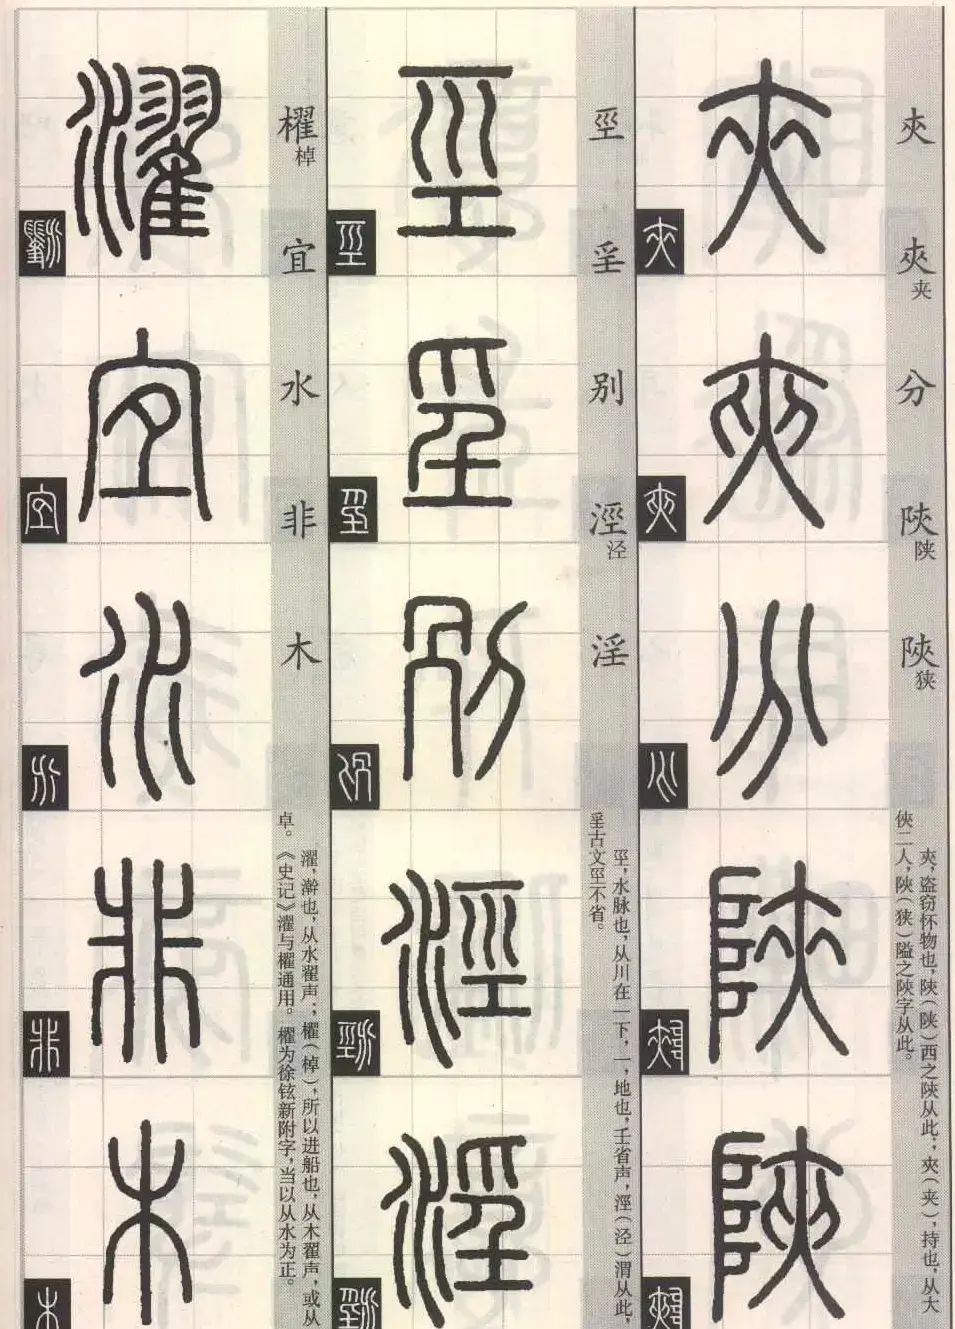 夾
夾夹
分
陜陕
陝狭
夾，盗窃怀物也，陝（陕）西之陝从此；夾（夹），持也，从大
俠二人，陜（狭）隘之陜字从此。
巠
𢀖
别
涇泾
淫
巠，水脉也，从川在一下，一，地也，壬省声，涇（泾）渭从此，
𢀖古文巠不省。
櫂棹
宜
水
非
木
濯，澣也，从水翟声；櫂（棹），所以进船也，从木翟声，或从
卓。《史记》濯与櫂通用。櫂为徐铉新附字，当以从水为正。